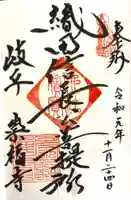 奉拝
令和元年
十一月二十四日
織田信長公菩提所
岐阜
崇福寺